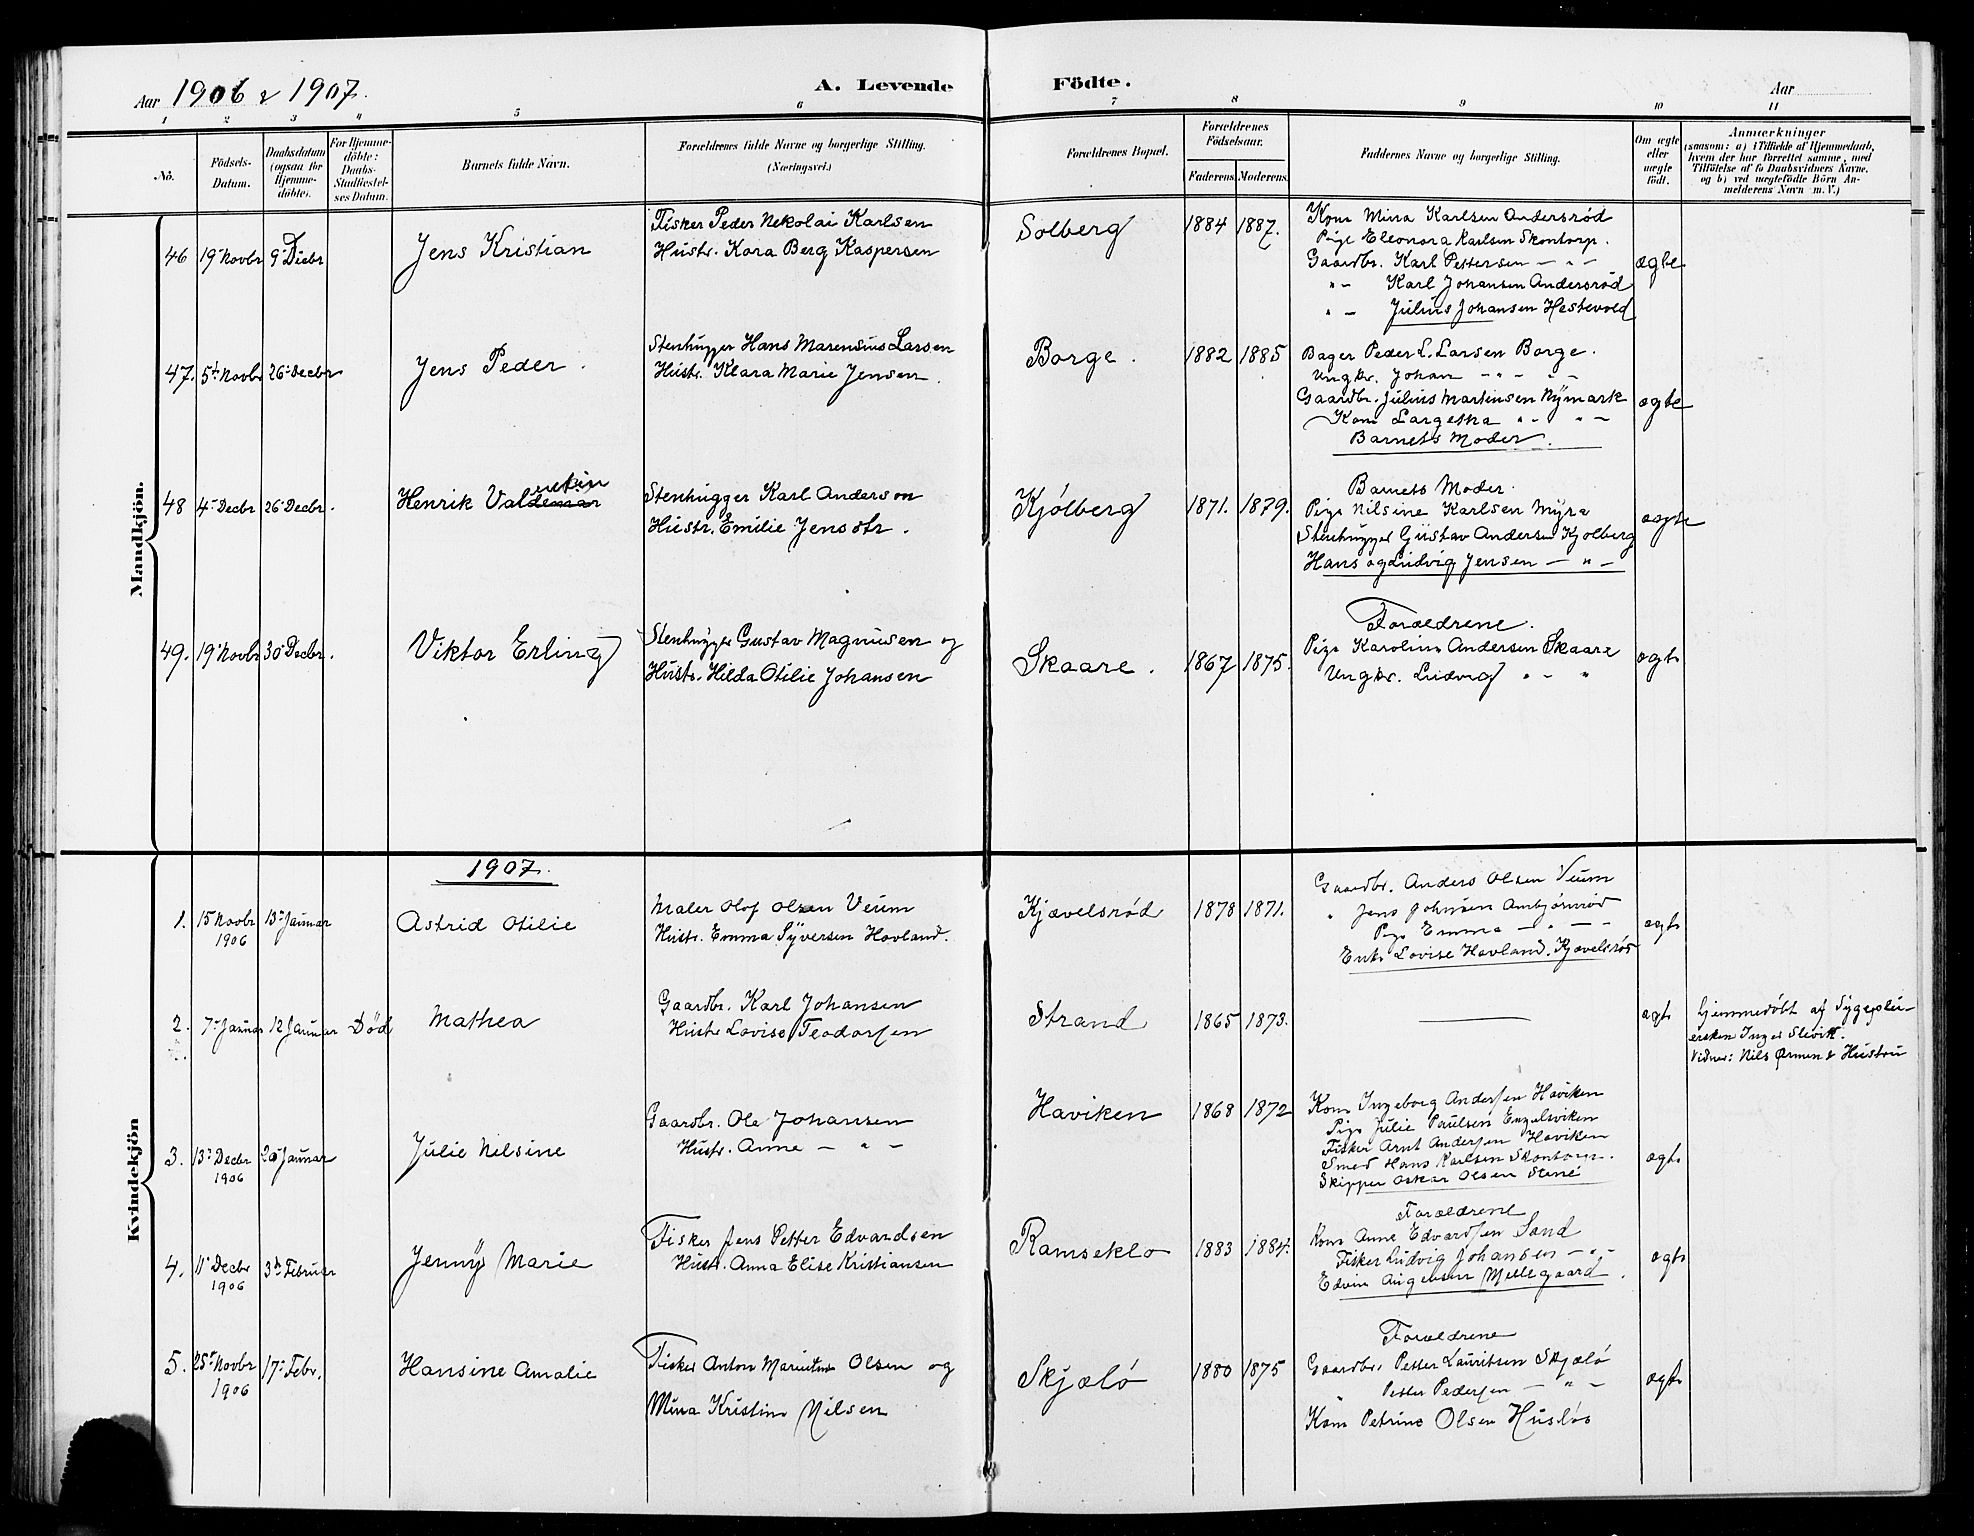 Aar 1906 & 1907.
A. Levende Födte.
Aar
1 2 3 4 5 6 7 8 9 10 11
No.
Födsels-Datum.
Daabsdatum (ogsaa for Hjemmedöbte).
For Hjemmedöbte: Daabs-Stadfæstelses Datum.
Barnets fulde Navn.
Forældrenes fulde Navne og borgerlige Stilling.
(Næringsvei.)
Forældrenes Bopæl.
Forældrenes Födselsaar.
Faderens Moderens.
Faddernes Navne og borgerlige Stilling.
Om ægte eller uægte födt.
Anmærkninger
(saasom: a) i Tilfælde af Hjemmedaab, hvem der har forrettet samme, med Tilföielse af to Daabsvidners Navne, og b) ved uægtefödte Börn Anmelderens Navn m. V.)
Mandkjön.
46 19 Novbr 9 Decbr
Jens Kristian
Fisker Peder Nekolai Karlsen
Hustr. Kora Berg Kaspersen
Solberg 1884 1887.
Kone Mina Karlsen Andersrød
Pige Eleonora Karlsen Skontorp.
Gaardbr. Karl Pettersen — " —
" — Karl Johansen Andersrød
" — Julius Johansen Hestevold
ægte
47. 5t Novbr 26 Decbr
Jens Peder.
Stenhugger Hans Marensius Larsen
Hustr. Klara Marie Jensen.
Borge. 1882 1885
Bager Peder L. Larsen Borge.
Ungkr. Johan — " — " —
Gaardbr. Julius Martinsen Nÿmark
Kone Largetha " — " —
Barnets Moder.
ægte
48 4 Decbr 26 Decbr.
Henrik Valdemar entin
Stenhugger Karl Anderson
Hustr. Emilie Jensdtr.
Kjølberg 1871. 1879.
Barnets Moder.
Pige Nilsine Karlsen Mÿra
Stenhugger Gustav Andersen Kjølberg
Hans og Ludvig Jensen — " —
ægte
49. 19 Novbr 30 Decbr.
Viktor Erling
Stenhugger Gustav Magnusen og
Hustr. Hilda Otilie Johansen
Skaare. 1867 1875.
Forældrene.
Pige Karoline Andersen Skaare
Ungkr. Ludvig " — "
ægte
Kvindekjön
1907.
1. 15 Novbr 1906 13 Januar
Astrid Otilie
Maler Olof Olsen Veum
Hustr. Emma Sÿversen Hovland.
Kjævelsrød 1878 1871.
Gaardbr. Anders Olsen Veum
" Jens Johnsen Ambjørnrød
Pige Emma — " — —
Enke Lovise Havland. Kjævelsrød
ægte
2. 7 Januar 12 Januar Död
Mathea
Gaardbr. Karl Johansen
Hustr Lovise Teodorsen
Strand 1865 1873.
—
ægte
Hjemmedöbt af Sygeplei-
ersken Inger Slevik.
Vidner: Nils Ørmen & Hustru
3. 13 Decbr 1906 20 Januar
Julie Nilsine
Gaardbr. Ole Johansen
Hustr. Anne — " —
Haviken 1868 1872
Kone Ingeborg Andersen Haviken
Pige Julie Paulsen Engelsviken
Fisker Arnt Andersen Haviken
Smed Hans Karlsen Skontorp.
Skipper Oskar Olsen Stene
ægte
4. 11 Decbr 1906 3die Februar
Jennÿ Marie
Fisker Jens Petter Edvardsen
Hustr. Anna Elise Kristiansen
Ramseklo 1883 1884.
Forældrene
Kone Anne Edvardsen Sand
Fisker Ludvig Johansen — " —
Edvin Augensen Mellegaard.
ægte
5. 25 Novbr 1906 17 Febr.
Hansine Amalie
Fisker Anton Olsen og
Mina Kristine Nilsen
Skjælø 1880 1875
Forældrene
Gaardbr. Petter Lauritsen Skjælø
Petter Pedersen — " —
Kone Petrine Olsen Husløs
ægte